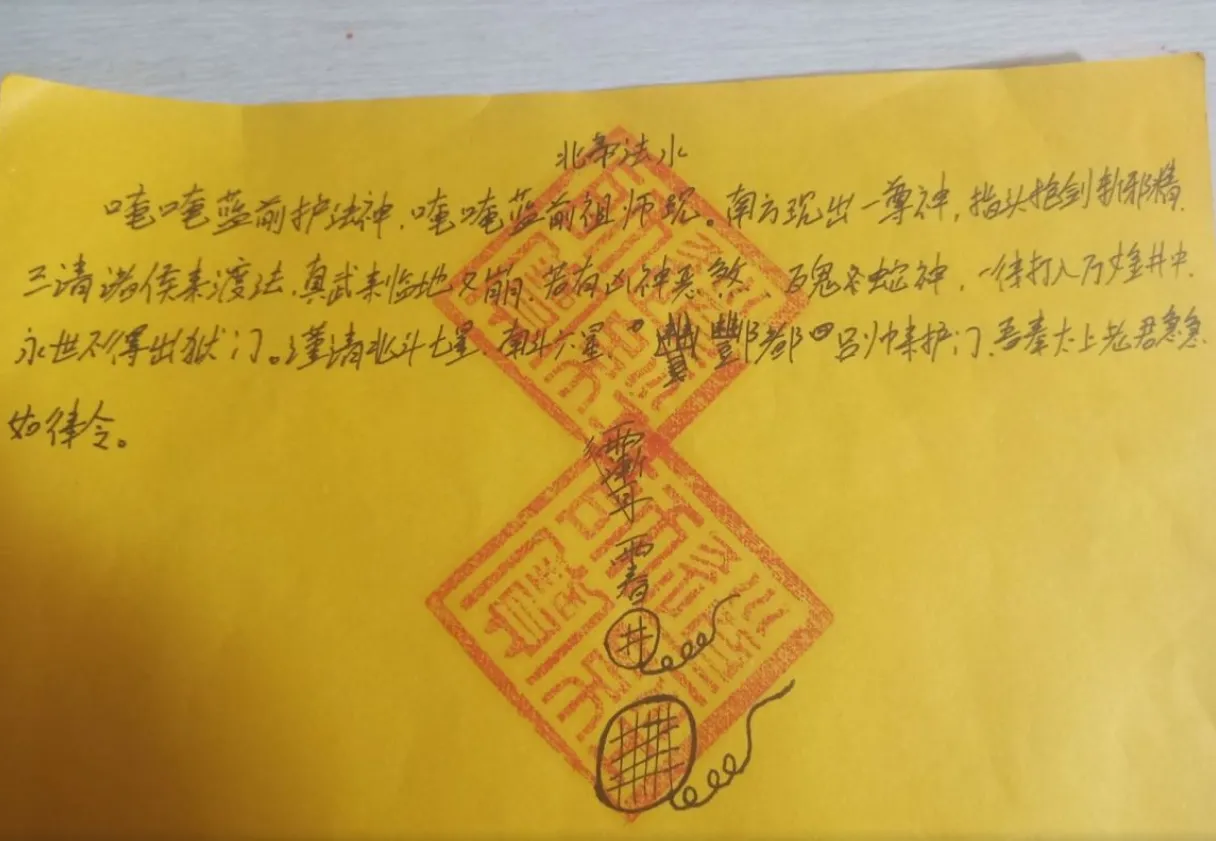 北帝法水
唵唵蓝前护法神,唵唵蓝前祖师现。南方现出一尊神,指头抢剑斩邪精,
三清诸侯来渡法,真武来临地又崩,若有凶神恶煞 蛇神,一律打入万丈井中,
永世不得出狱门。谨请北斗七星,南斗六星, 酆都四 帅来护门,吾奉太上老君急急
如律令。
井